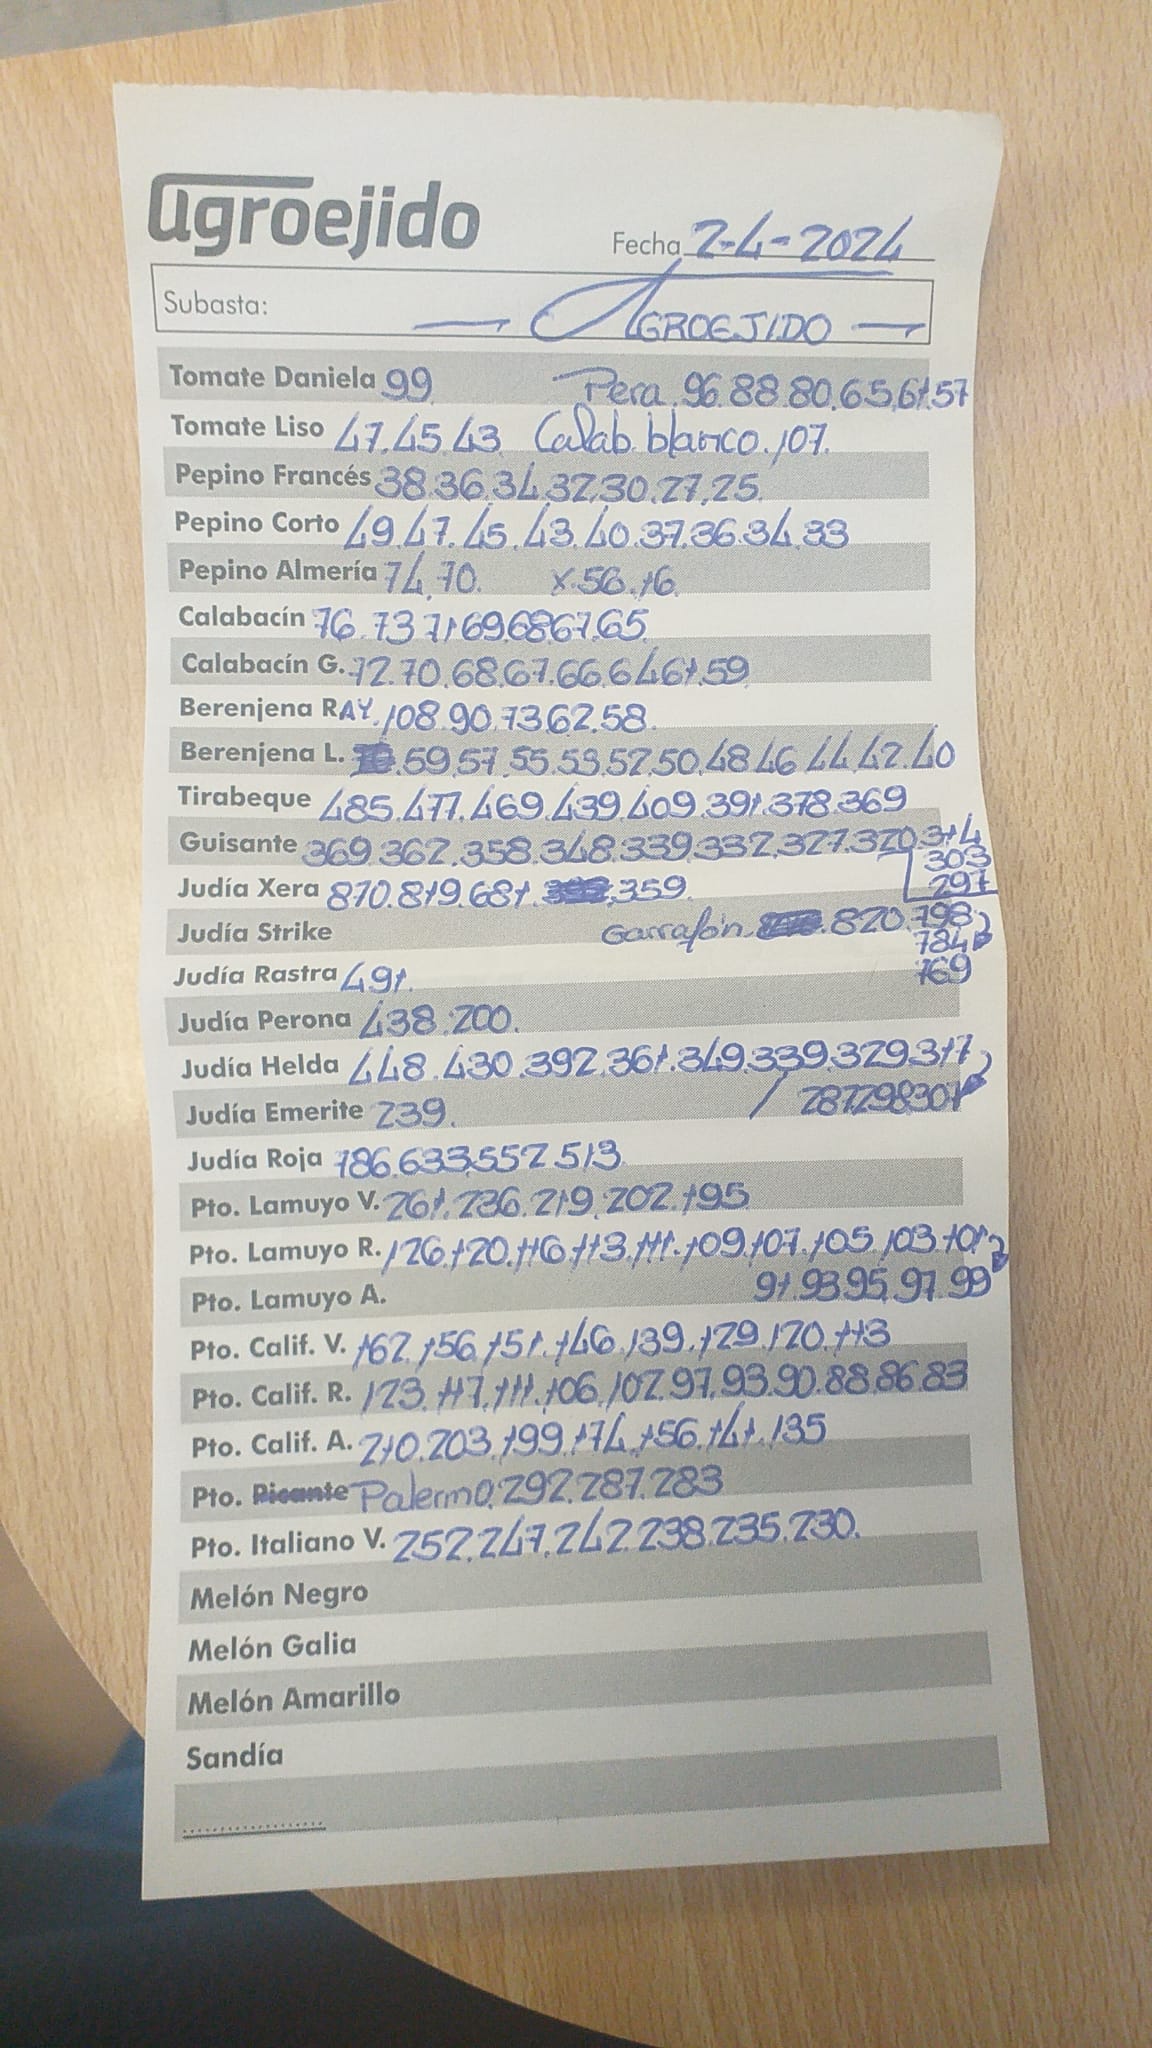 agroejido
Fecha 2-4-2024
Subasta: — AGROEJIDO —
Tomate Daniela 99 Pera. 96.88.80.65.61.57
Tomate Liso 47.45.43 Calab. blanco. 107.
Pepino Francés 38.36.34.32.30.27.25.
Pepino Corto 49.47.45.43.40.37.36.34.33
Pepino Almería 74.70. X.56.16.
Calabacín 76.73.71.69.68.67.65.
Calabacín G. 72.70.68.67.66.64.61.59
Berenjena RAY. 108.90.73.62.58.
Berenjena L. .59.57.55.53.52.50.48.46.44.42.40
Tirabeque 485.477.469.439.409.391.378.369
Guisante 369.362.358.348.339.332.327.320.314
303
297
Judía Xera 870.819.681. .359.
Judía Strike Garrafón. .820.798
784
769
Judía Rastra 491.
Judía Perona 438.200.
Judía Helda 448.430.392.361.349.339.329.317
Judía Emerite 239. / 287.298.307
Judía Roja 786.633.552.513.
Pto. Lamuyo V. 261.236.219.202.195
Pto. Lamuyo R. 126.120.116.113.111.109.107.105.103.101
Pto. Lamuyo A. 91.93.95.97.99
Pto. Calif. V. 162.156.151.146.139.129.120.113
Pto. Calif. R. 123.117.111.106.102.97.93.90.88.86.83
Pto. Calif. A. 210.203.199.174.156.141.135
Pto. Picante Palermo.292.287.283
Pto. Italiano V. 252.247.242.238.235.230.
Melón Negro
Melón Galia
Melón Amarillo
Sandía